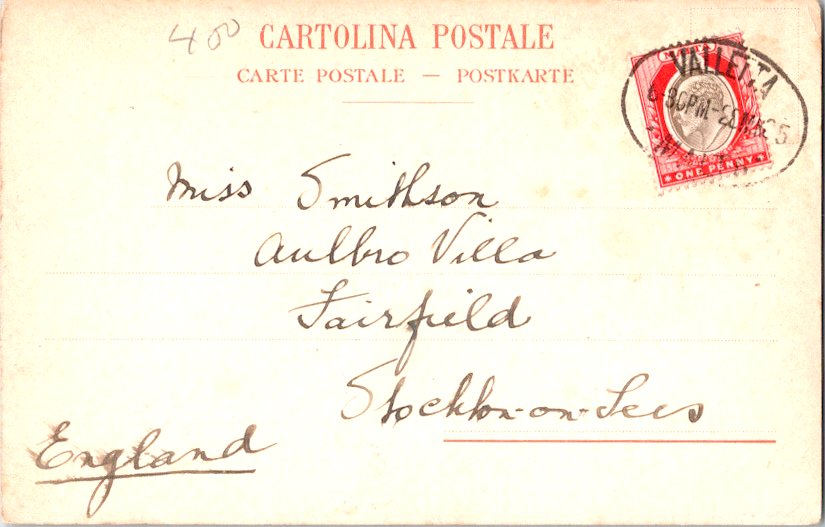 400
CARTOLINA POSTALE
CARTE POSTALE — POSTKARTE
MALTA
VALLETTA
ONE PENNY
Miss Smithson
Aulbro Villa
Fairfield
Stockton-on-Tees
England